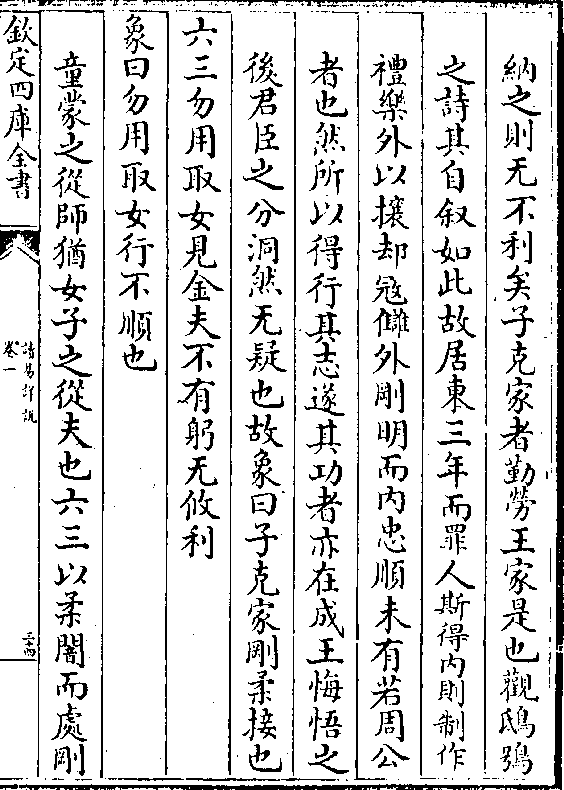 納之則无不利矣子克家者勤勞王家是也觀鴟鴞
之詩其自叙如此故居東三年而罪人斯得内則制作
禮樂外以攘却冦讎外剛明而内忠順未有若周公
者也然所以得行其志遂其功者亦在成王悔悟之
後君臣之分洞然无疑也故象曰子克家剛柔接也
六三勿用取女見金夫不有躬无攸利
象曰勿用取女行不順也
童蒙之從師猶女子之從夫也六三以柔闇而處剛
欽定四庫全書
讀易詳說
卷一
三十四